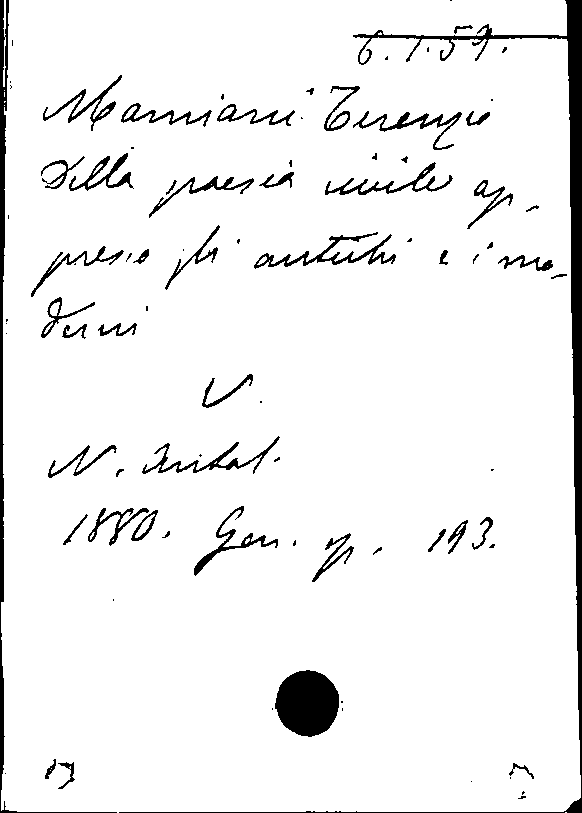 6.1.59.
Mamiani Terenzio
Della poesia civile ap-
presso gli antichi e i mo-
derni
V.
N. Antol.
1880. Gen. p. 193.